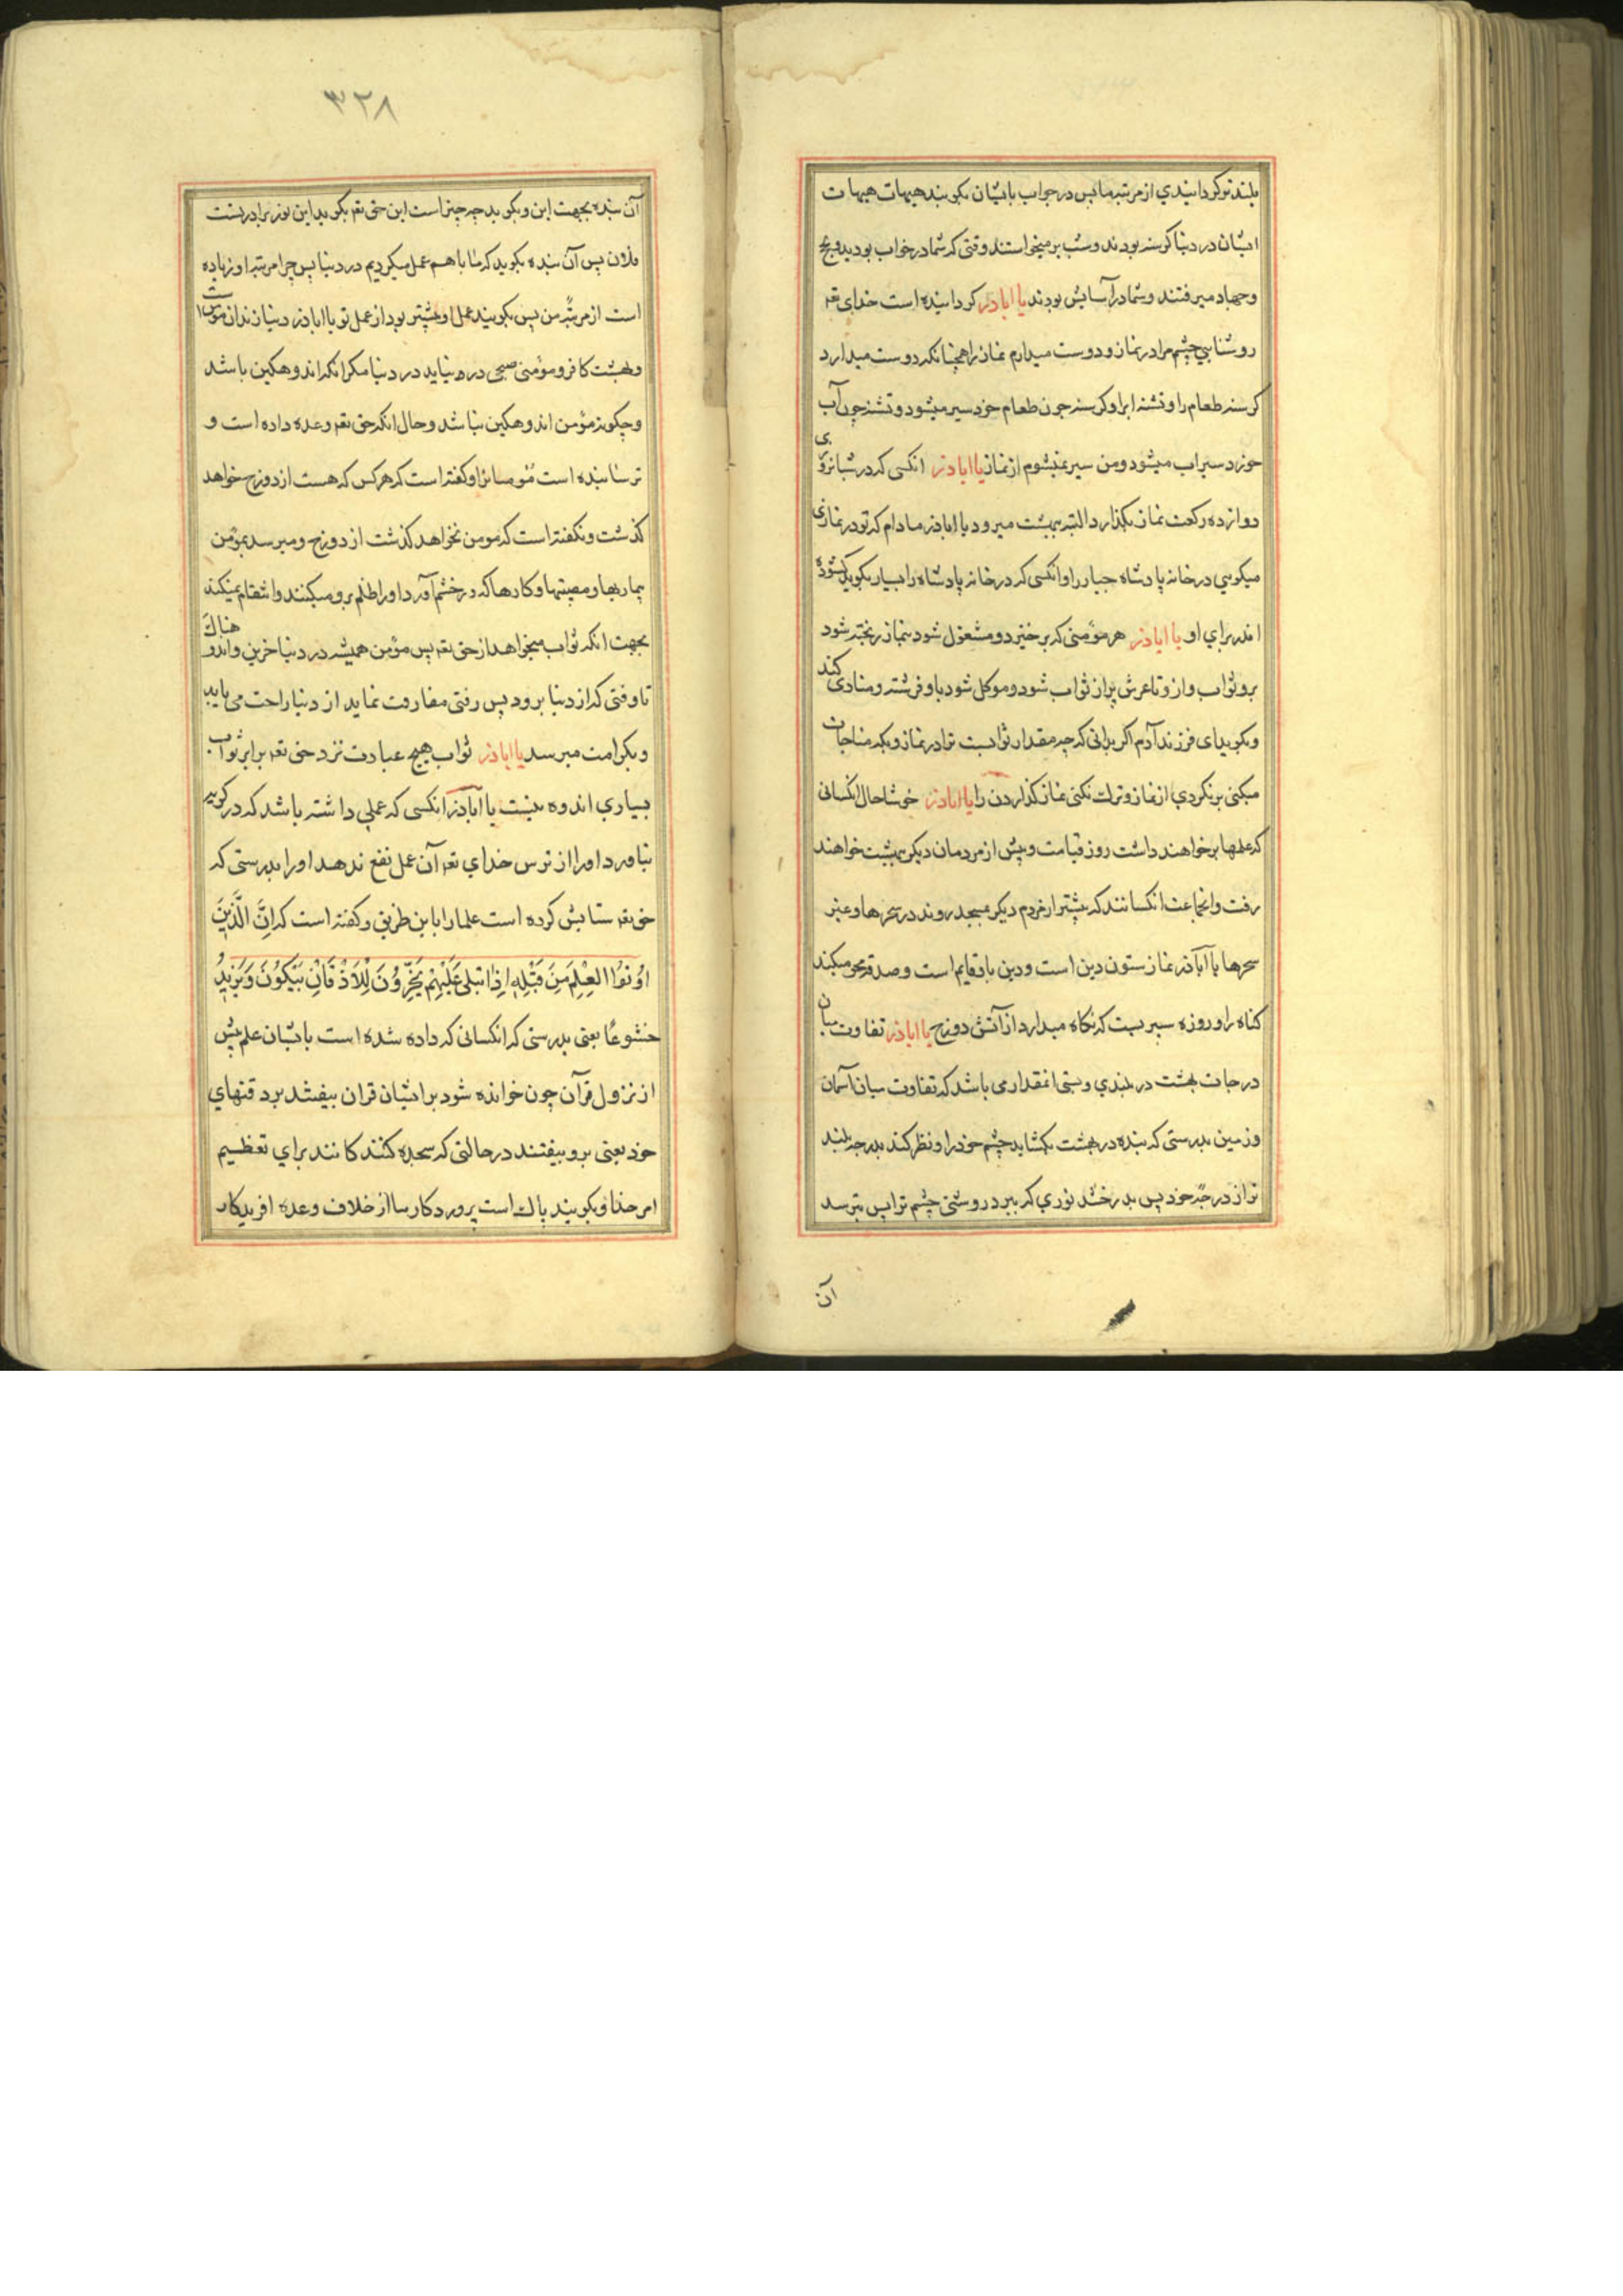 بلند تر کردانیدي از مرتبه ما پس در جواب بایشان بکویند هیهات هیهات
ایشان در دنیا کرسنه بودند و شب بر میخواستند وقتی که شما در خواب بودید و بحج
و جهاد میرفتند و شما در آسایش بودند یا اباذر کردانیده است خدای تعـ
روشنایي چشم مرا در نماز و دوست میدارم نماز را همچنانکه دوست میدارد
کرسنه طعام را و تشنه ابرا و کرسنه چون طعام خورد سیر میشود و تشنه چون آب
خورد سیراب میشود و من سیر نمیشوم از نماز یا اباذر انکسی که در شبانروزی
دوازده رکعت نماز بکذارد البته ببهشت میرود یا اباذر مادام که تو در نمازی
میکوبي در خانه پادشاه جبار را و انکسی که در خانه پادشاه را بسیار بکوبد کشوده
اندر براي او یا اباذر هر مؤمنی که بر خیزد و مشغول شود بنماز ریخته شود
برو ثواب و از و تا عرش پر از ثواب شود و موکل شود باو فرشته و منادی کند
و بکوید ای فرزند آدم اکر بدانی که چه مقدار ثوابست ترا در نماز و بکه مناجات
میکنی بر نکردي از نماز و ترک نکنی نماز کذاردن را یا اباذر خوشا حال انکسانی
که علمها بر خواهند داشت روز قیامت و پیش از مردمان دیکر ببهشت خواهند
رفت و انجاعت انکسانند که بیشتر از مردم دیکر بمسجد روند در سحرها و غیر
سحرها یا اباذر نماز ستون دین است و دین باو قایم است و صدقه محو میکند
کناه را و روزه سپریست که نکاه میدارد از آتش دوزخ یا اباذر تفاوت میان
درجات بهشت در بلندي و پستی انمقداری باشد که تفاوت میان آسمان
و زمین بدرستی که بنده در بهشت بکشاید چشم خود را و نظر کند بدرجه بلند
تر از درجه خود پس بدرخشد نوري که ببرد روشنی چشم ترا پس بترسد
آن
٣٢٨
آن بنده بجهت این و بکوید چه چیز است این حق تعـ بکوید این نور برادر تست
فلان پس آن بنده بکوید که ما با هم عمل میکردیم در دنیا پس چرا مرتبه او زیاده
است از مرتبه من پس بکویند عمل او بیشتر بود از عمل تو یا اباذر دنیا زندان مؤمن است
و بهشت کافر و مؤمنی صبحی درو نیاید در دنیا مکر انکه اندوهکین باشد
و چکونه مؤمن اندوهکین نباشد و حال انکه حق تعـ وعده داده است و
ترسانیده است مؤمنانرا و کفته است که هر کس که هست از دوزخ خواهد
کذشت و نکفته است که مومن نخواهد کذشت از دوزخ و میرسد بمؤمن
بیماریها و مصیبتها و کارها که در خشم آورد او را ظلم برو میکنند و انتقام نمیکند
بجهت انکه ثواب میخواهد از حق تعـ پس مؤمن همیشه در دنیا حزین و اندوهناک
تا وقتی که از دنیا برود پس رفتی مفارقت نماید از دنیا راحت می یابد
و بکرامت میرسد یا اباذر ثواب هیچ عبادت نزد حق تعـ برابر ثواب
بسیاري اندوه نیست یا اباذر انکسی که عملي داشته باشد که در کریه
نیاورد او را از ترس خداي تعـ آن عمل نفع ندهد او را بدرستی که
حق تعـ ستایش کرده است علما را باین طریق و کفته است که اِنَّ الَّذِینَ
اُوتُوا العِلْمَ مِنَ قَبْلِهِ اِذا یتلی عَلَیْهِمْ یَخِرُّونَ لِلْاَذْقَانِ یَبْکُونَ وَ یَزِیدُ
خشوعًا یعنی بدرستی که انکسانی که داده شده است بایشان علم پیش
از نزول قرآن چون خوانده شود بر ایشان قران بیفتند برد قنهاي
خود یعنی برو بیفتند در حالتی که سجده کنند کانند براي تعظیم
امر خدا و بکویند پاک است پروردکار ما از خلاف وعده افریدکار